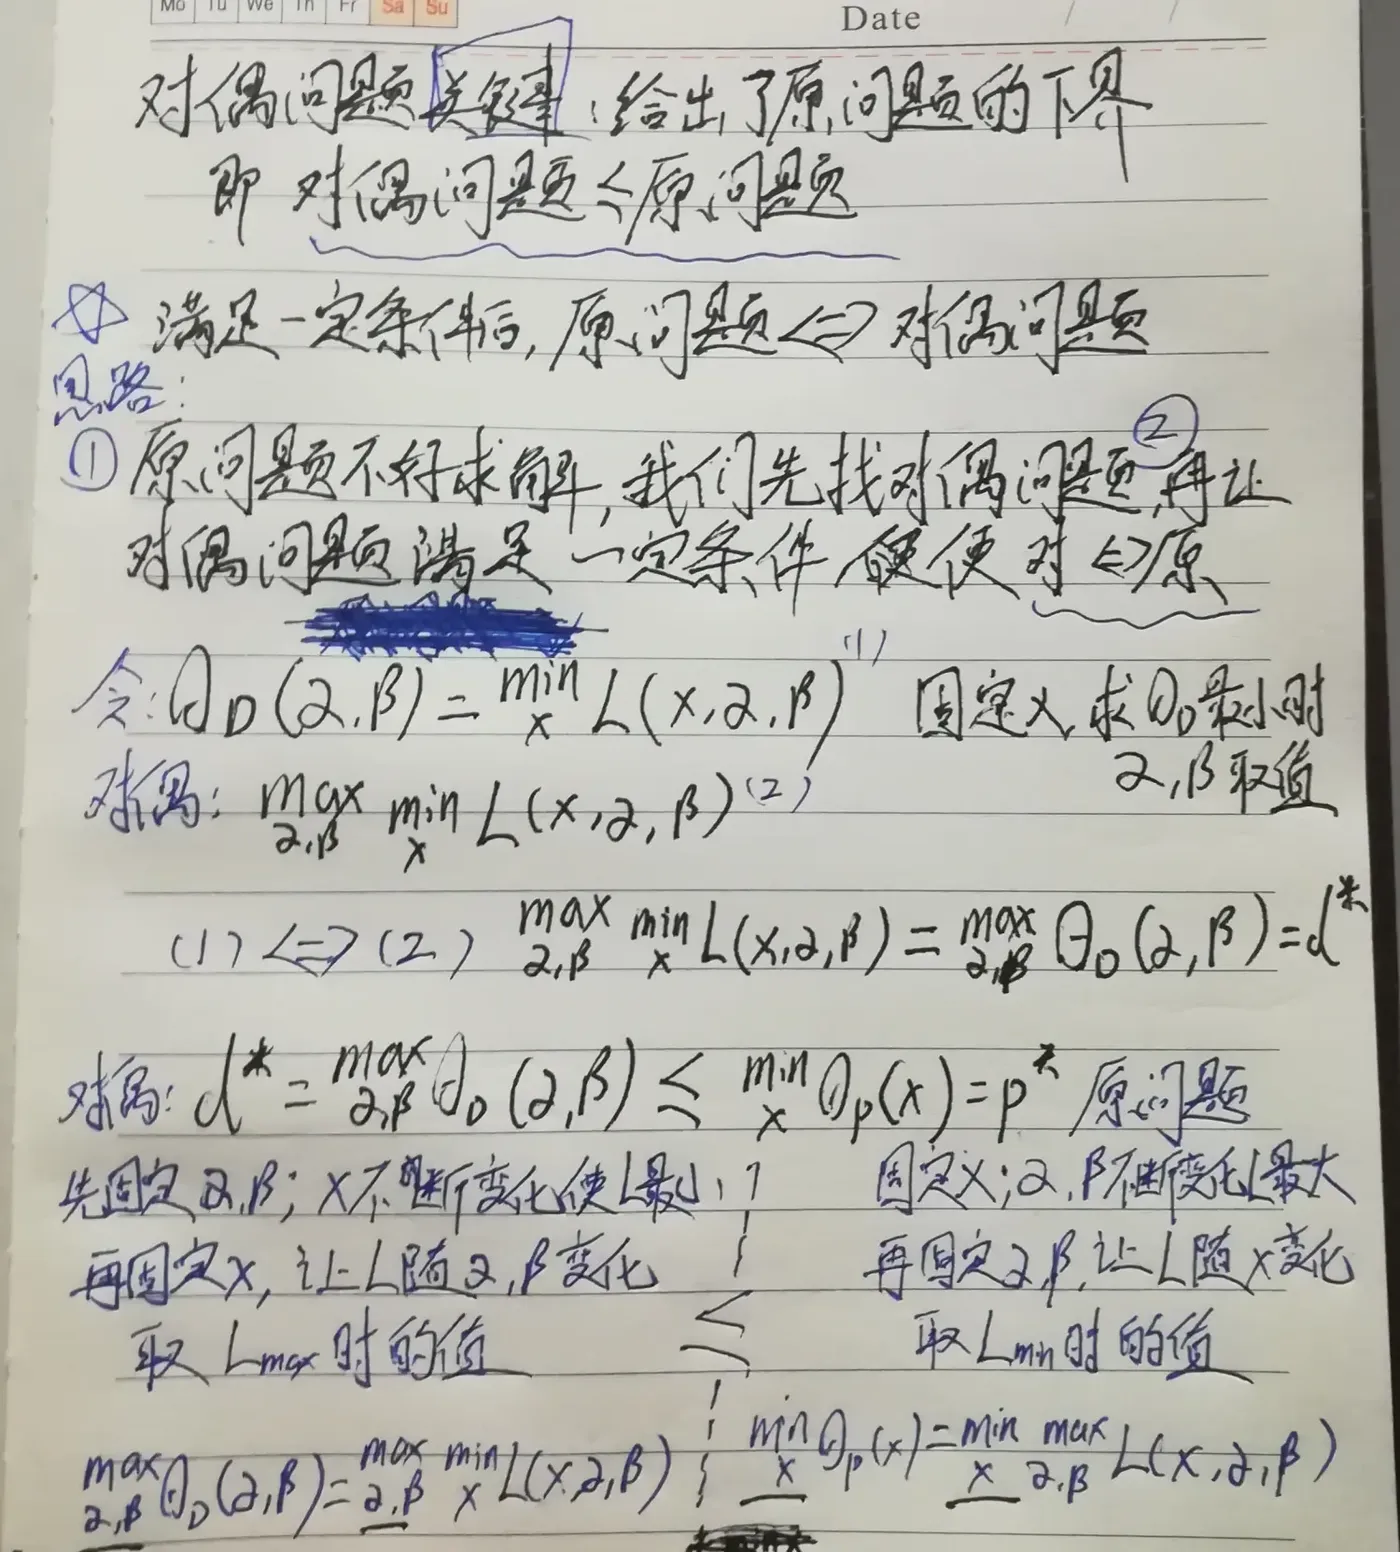 Mo Tu We Th Fr Sa Su
Date
对偶问题关键:给出了原问题的下界
即 对偶问题≤原问题
☆ 满足一定条件后,原问题<=>对偶问题
思路:
① 原问题不好求解,我们先找对偶问题,②再让
对偶问题满足一定条件 便使对<=>原
令:θD(α,β)=min x L(x,α,β) (1) 固定x,求θD最小时
α,β取值
对偶: max α,β min x L(x,α,β) (2)
(1)<=>(2) max α,β min x L(x,α,β)=max α,β θD(α,β)=d*
对偶: d*=max α,β θD(α,β)≤min x θp(x)=p* 原问题
先固定α,β;x不断变化使L最小, 固定x;α,β不断变化L最大
再固定x,让L随α,β变化 再固定α,β,让L随x变化
取Lmax时的值 ≤ 取Lmin时的值
max α,β θD(α,β)=max α,β min x L(x,α,β) min x θp(x)=min x max α,β L(x,α,β)